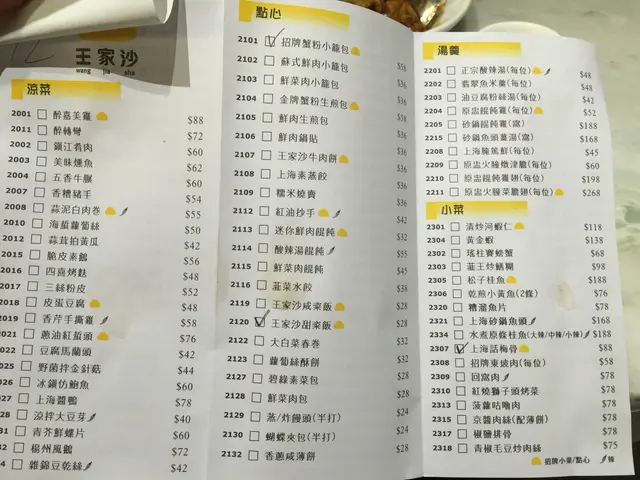 王家沙
wang jia sha
涼菜
2001 醉嘉美雞 $88
2011 醉轉彎 $72
2002 鎭江肴肉 $60
2003 美味燻魚 $62
2004 五香牛𦟌 $60
2007 香糟豬手 $54
2008 蒜泥白肉卷 $55
2010 海蜇蘿蔔絲 $50
2012 蒜茸拍黃瓜 $42
2015 脆皮素鵝 $56
2016 四喜烤麩 $48
2017 三絲粉皮 $52
2018 皮蛋豆腐 $48
2019 香芹手撕雞 $58
2021 蔥油紅蜇頭 $76
022 豆腐馬蘭頭 $42
025 野菌拌金針菇 $44
026 冰鎭仿鮑魚 $60
027 上海醬鴨 $78
028 涼拌大豆芽 $40
31 青芥鮮螺片 $60
32 楊州風鵝 $72
4 雜錦豆乾絲 $42
點心
2101 招牌蟹粉小籠包
2102 蘇式鮮肉小籠包 $58
2103 鮮菜肉小籠包 $36
2104 金牌蟹粉生煎包 $36
2105 鮮肉生煎包 $56
2106 鮮肉鍋貼 $36
2107 王家沙牛肉餅 $36
2108 上海素蒸餃 $36
2109 糯米燒賣 $36
2112 紅油抄手 $36
2113 迷你鮮肉餛飩 $42
2114 酸辣湯餛飩 $32
2115 鮮菜肉餛飩 $55
2116 韮菜水餃 $45
2119 王家沙咸粢飯 $38
2120 王家沙甜粢飯 $28
2122 大白菜春卷 $28
2123 蘿蔔絲酥餅 $32
2127 碧綠素菜包 $32
2128 鮮菜肉包 $28
2129 蒸/炸饅頭(半打) $28
2130 蝴蝶夾包(半打) $24
2132 香蔥咸薄餅 $24
$28
湯羹
2201 正宗酸辣湯(每位) $48
2202 翡翠魚米羹(每位) $48
2203 油豆腐粉絲湯(每位) $42
2204 原盅餛飩雞(每位) $52
2205 砂鍋餛飩雞(窩) $188
2215 砂鍋魚頭薑湯(窩) $168
2208 上海腌篤鮮(每位) $45
2209 原盅火腿燉津膽(每位) $60
2210 原盅火腿餛飩雞翅(每位) $198
2211 原盅火腿菜膽翅(每位) $268
小菜
2301 清炒河蝦仁 $118
2304 黃金蝦 $138
2302 瑤柱賽螃蟹 $68
2303 韮王炒鱔糊 $98
2305 松子桂魚 $188
2306 乾煎小黃魚(2條) $76
2320 糟溜魚片 $78
2321 上海砂鍋魚頭 $168
2334 水煮原條桂魚(大辣/中辣/小辣) $188
2307 上海話梅骨 $88
2308 招牌東坡肉(每位) $58
2309 回窩肉 $78
2310 紅燒獅子頭烤菜 $78
2313 菠蘿咕嚕肉 $78
2315 京醬肉絲(配薄餅) $78
2317 椒鹽排骨 $78
2318 青椒毛豆炒肉絲 $75
招牌小菜/點心 辣